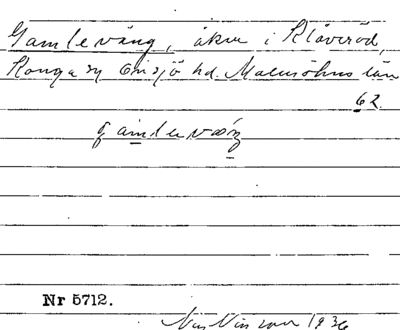 Gamlevång, åker i Klåveröd,
Konga sn Onsjö hd. Malmöhus län
62.
Nr 5712.
Nils Nilsson 1936